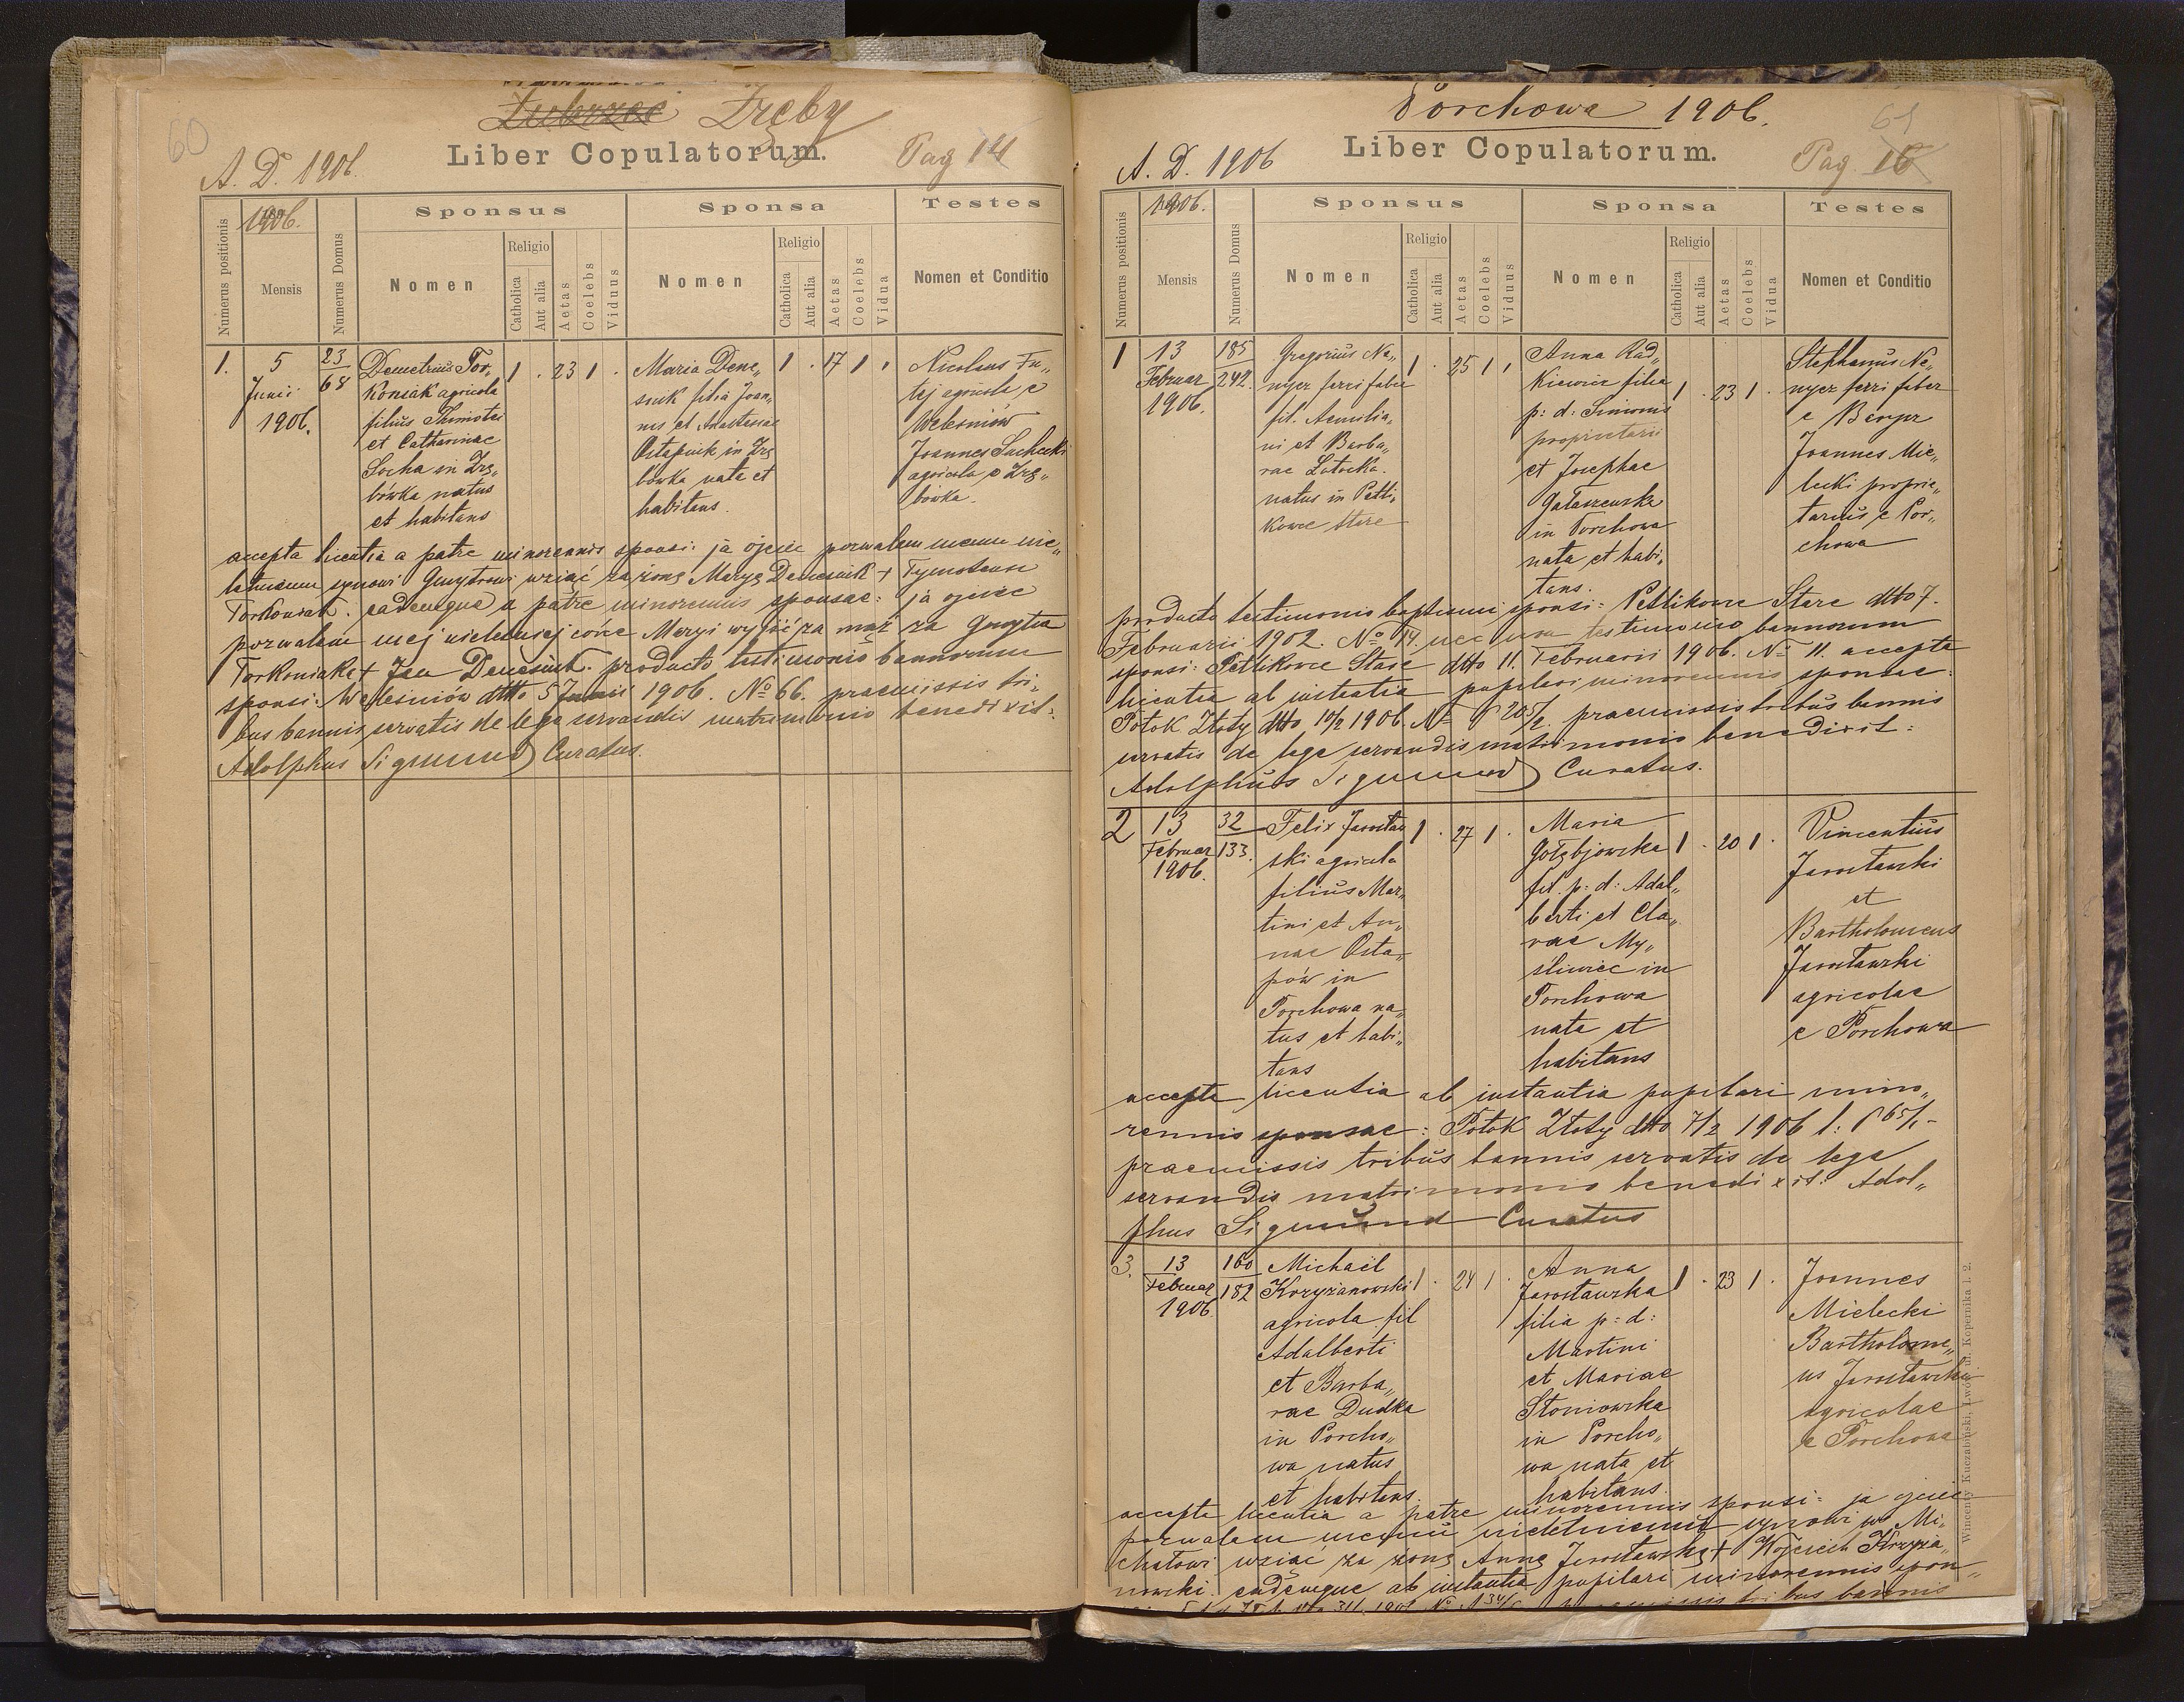 60
Zubrzec Zręby
A. D. 1906.
Liber Copulatorum.
Pag 14
Numerus positionis
1906.
Mensis
Numerus Domus
Sponsus
Nomen
Religio
Catholica
Aut alia
Aetas
Coelebs
Viduus
Sponsa
Nomen
Religio
Catholica
Aut alia
Aetas
Coelebs
Vidua
Testes
Nomen et Conditio
1.
5
Junii
1906.
23
68
Demetrius Tor„
koniak agricola
filius Thimotei
et Catharinae
Socha in Zrę„
bówka natus
et habitans
1 . 23 1 .
Maria Dene„
siuk filia Joan„
nis et Anastasiae
Ostapiuk in Zrę
bówka nata et
habitans.
1 . 17 1 .
Nicolaus Fu„
tej agricola e
Weleśniów
Joannes Suchecki
agricola e Zrę„
bówka.
accepta licentia a patre minorennis sponsi: ja ojciec pozwalam memu nie„
letniemu synowi Gmytrowi wziąć za żonę Maryę Denesiuk + Tymoteusz
Torkoniak. eademque a patre minorennis sponsae: ja ojciec
pozwalam mej nieletniej córce Maryi wyjść za mąż za Gmytra
Torkoniaka + Jan Denesiuk. producto testimonio bannorum
sponsi: Weleśniów dtto 5 Junii 1906. No 66. praemissis tri„
bus bannis servatis de lege servandis matrimonio benedixit:
Adolphus Sigmund Curatus.
Porchowa 1906.
61
A. D. 1906
Liber Copulatorum.
Pag. 16
Numerus positionis
1906.
Mensis
Numerus Domus
Sponsus
Nomen
Religio
Catholica
Aut alia
Aetas
Coelebs
Viduus
Sponsa
Nomen
Religio
Catholica
Aut alia
Aetas
Coelebs
Vidua
Testes
Nomen et Conditio
1
13
Februar
1906.
185
242.
Gregorius Ne„
nycz ferri faber
fil. Aemilia„
ni et Barba„
rae Lotocka.
natus in Petli„
kowce stare
1 . 25 1 .
Anna Rad„
kiewicz filia
p: d: Simonis
proprietarii
et Josephae
Gałaszewska
in Porchowa
nata et habi„
tans.
1 . 23 1 .
Stephanus Ne„
nycz ferri faber
e
Joannes Mie„
lecki proprie„
tarius e Por„
chowa
producto testimonio baptismi sponsi: Petlikowce Stare dtto 7.
Februarii 1902. No 14. nec non testimonio bannorum
sponsi: Petlikowce Stare dtto 11. Februarii 1906. No 11. accepta
licentia ab instantia pupilari minorennis sponsae:
Potok Złoty dtto 10/2 1906. No P 205/2. praemissis tribus bannis
servatis de lege servandis matrimonio benedixit:
Adolphus Sigmund Curatus.
2
13
Februar
1906.
32
133.
Felix Jarosław
ski agricola
filius Mar„
tini et An„
nae Osta„
pów in
Porchowa na„
tus et habi„
tans
1 . 27 1 .
Maria
Gołębjowska
fil. p: d: Adal„
berti et Cla„
rae My„
śliwiec in
Porchowa
nata et
habitans
1 . 20 1 .
Vincentius
Jarosławski
et
Bartholomeus
Jarosławski
agricolae
e Porchowa
accepta licentia ab instantia pupilari mino„
rennis sponsae: Potok Złoty dtto 7/2 1906 l: P 65/1.-
praemissis tribus bannis servatis de lege
servandis matrimonio benedixit: Adol„
phus Sigmund Curatus
3.
13
Februar
1906.
160
182
Michaël
Korzyżanowski
agricola fil
Adalberti
et Barba„
rae Dudka
in Porcho„
wa natus
et habitans.
1 . 24 1 .
Anna
Jarosławska
filia p: d:
Martini
et Mariae
Słoniowska
in Porcho„
wa nata et
habitans.
1 . 23 1 .
Joannes
Mielecki
Bartholome„
us Jarosławski
agricolae
e Porchowa
accepta licentia a patre minorennis sponsi: ja ojciec
pozwalam memu nieletniemu synowi Mi„
chałowi wziąć za żonę Annę Jarosławską + Wojciech Korzyża„
nowski. eademque ab instantia pupilari minorennis spon„
tribus bannis
Wincenty Kuczabiński, Lwów ul. Kopernika l. 2.